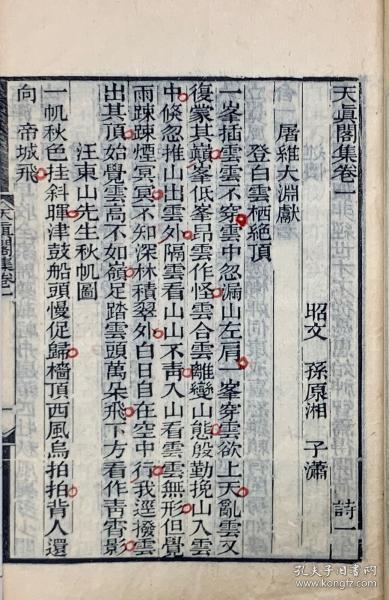 天真閣集卷一
昭文 孫原湘 子瀟
詩一
屠維大淵獻
登白雲棲絕頂
一峯插雲雲不穿雲中忽漏山左肩一峯穿雲欲上天亂雲又
復蒙其巔峯低峯昂雲作怪雲合雲離變山態殷勤挽山入雲
中倏忽推山出雲外隔雲看山山不靑入山看雲雲無形但覺
雨踈踈煙冥冥不知深林積翠外白日自在空中行我逕撥雲
出其頂始覺雲高不如嶺足踏雲頭萬朵飛下方看作靑霄影
汪東山先生秋帆圖
一帆秋色挂斜暉津鼓船頭慢促歸檣頂西風烏拍拍背人還
向 帝城飛
天真閣集卷一
孔夫子旧书网